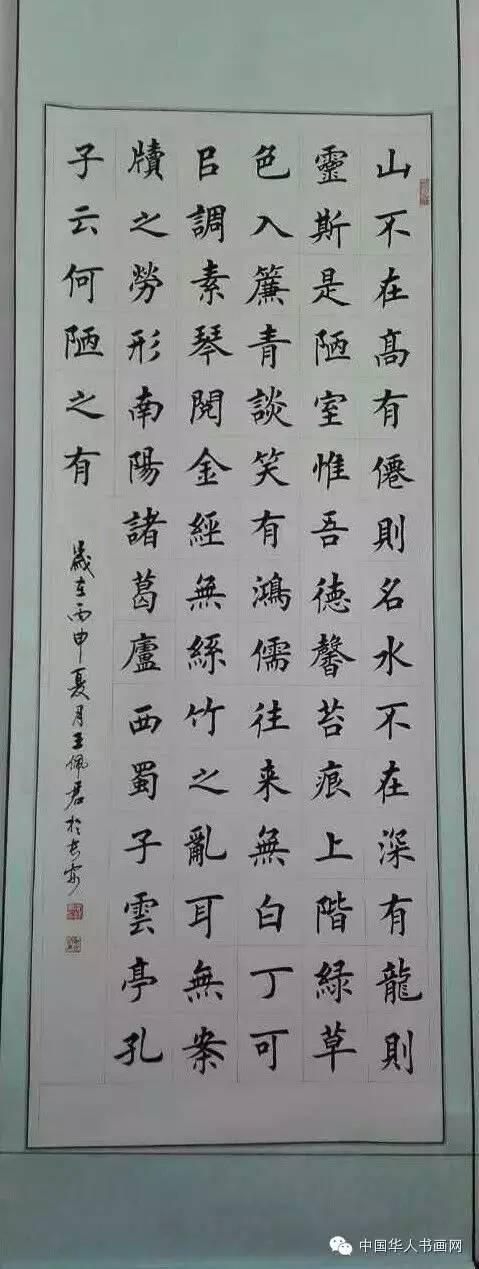 山不在高有僊則名水不在深有龍則
靈斯是陋室惟吾德馨苔痕上階緑草
色入簾青談笑有鴻儒往来無白丁可
㠯調素琴閱金經無絲竹之亂耳無案
牘之勞形南陽諸葛廬西蜀子雲亭孔
子云何陋之有
歲在丙申夏月王佩君於長安
中国华人书画网